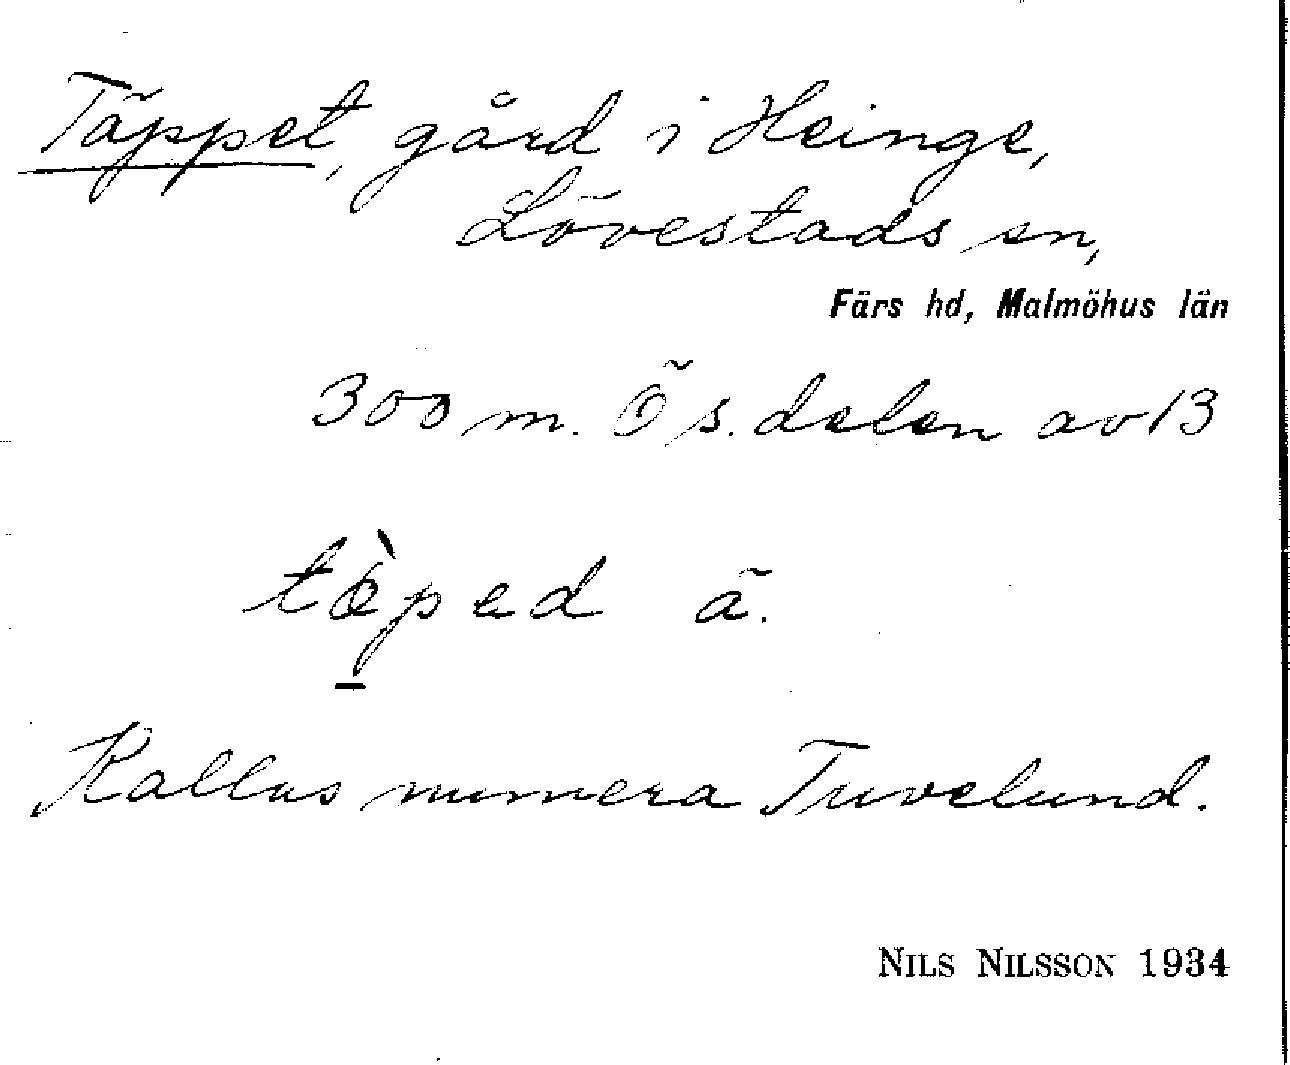 Täppet, gård i Heinge,
Lövestads sn,
Färs hd, Malmöhus län
300 m. Ö s. delen av 13
tæ̀ped ä.
Kallas numera Tuvelund.
NILS NILSSON 1934